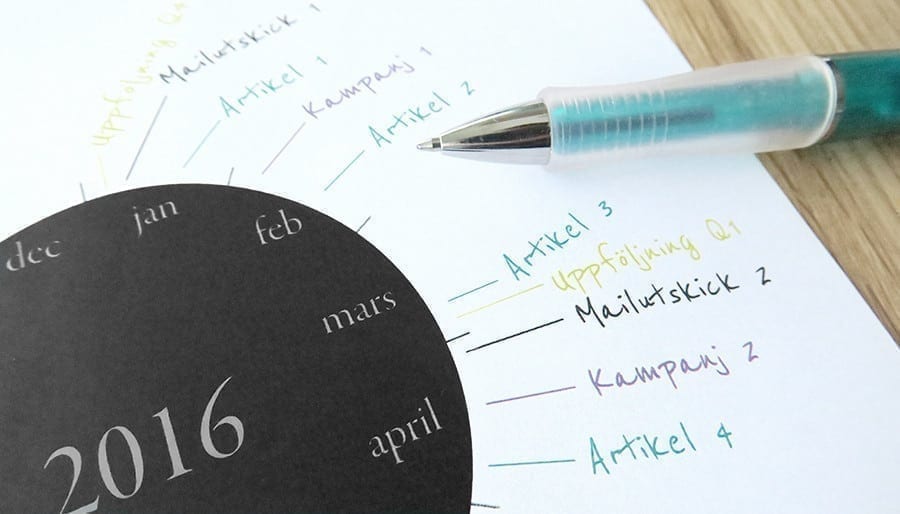 Uppföljning Q4
Mailutskick 1
Artikel 1
Kampanj 1
Artikel 2
Artikel 3
Uppföljning Q1
Mailutskick 2
Kampanj 2
Artikel 4
dec
jan
feb
mars
april
2016